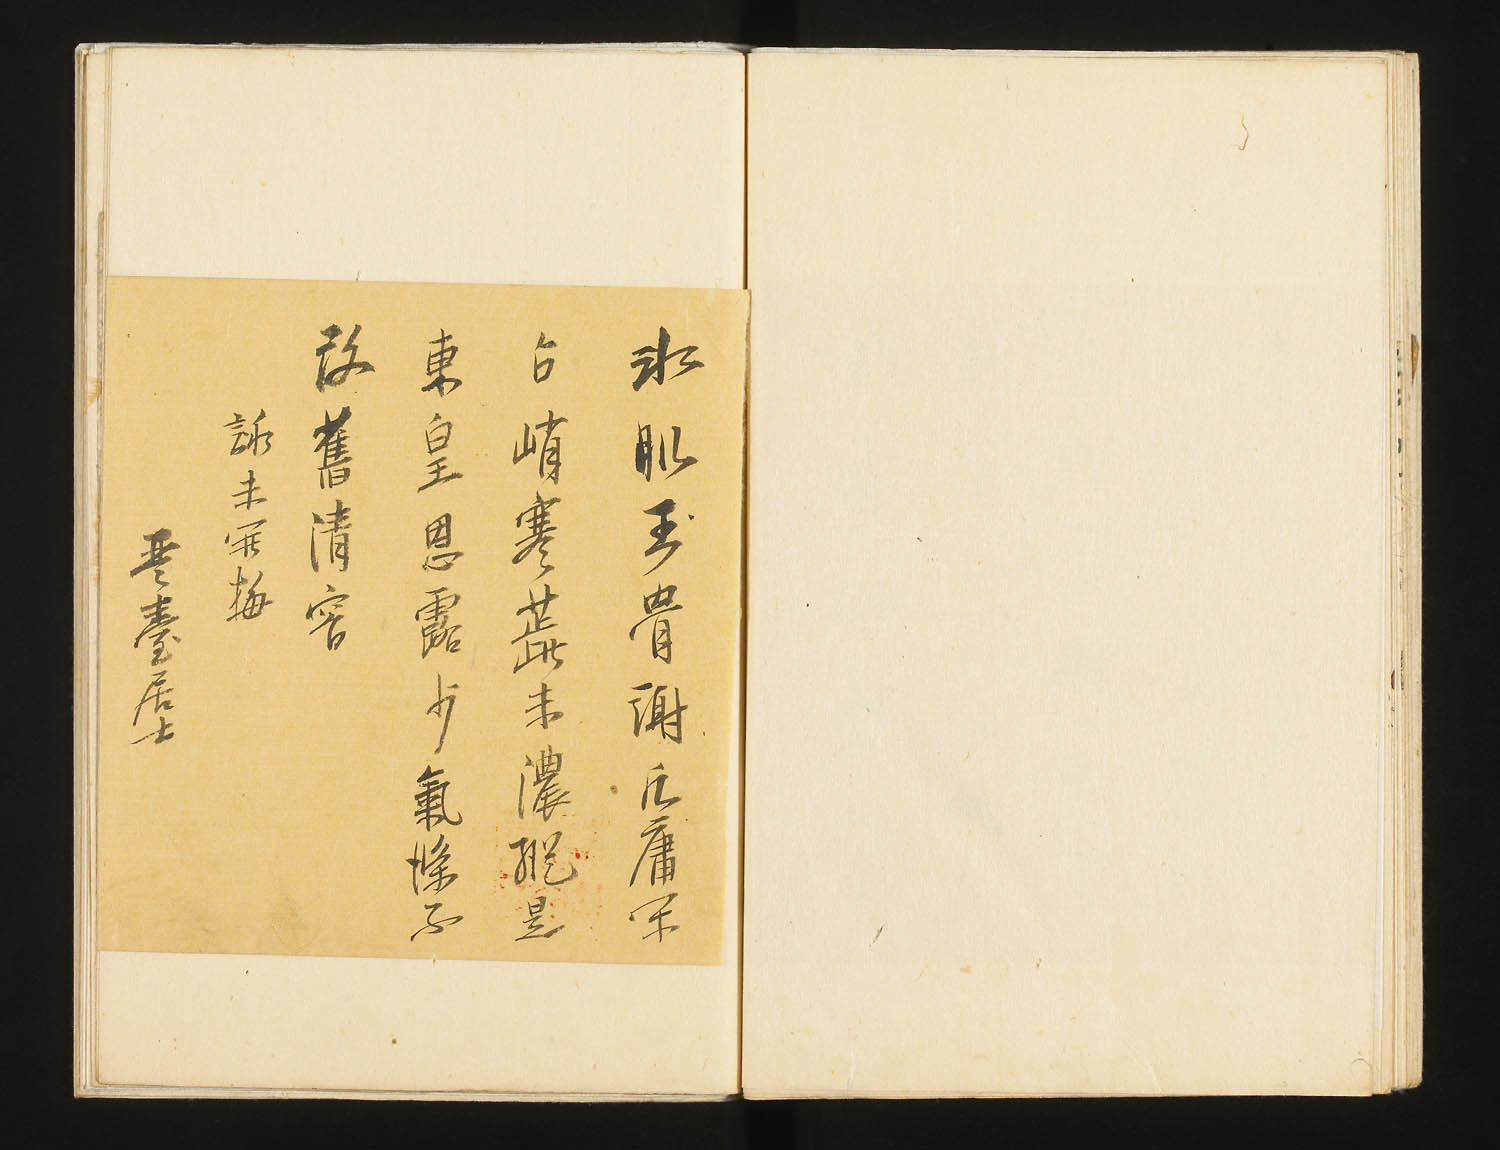 氷肌玉骨謝凡庸
占峭寒蘂未濃縱是
東皇恩露少氣條不
改舊清容
詠未開梅
琴臺居士